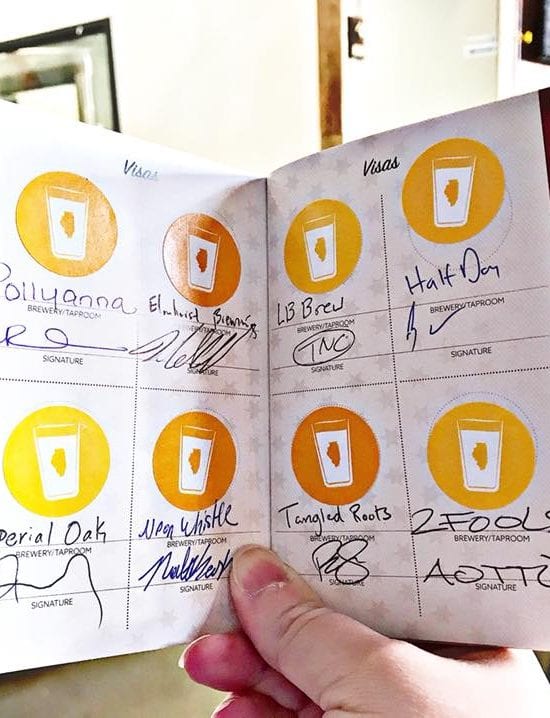 Visas
Pollyanna
BREWERY/TAPROOM
SIGNATURE
Elmhurst Brewing
BREWERY/TAPROOM
SIGNATURE
perial Oak
BREWERY/TAPROOM
SIGNATURE
Neon Whistle
BREWERY/TAPROOM
SIGNATURE
Visas
LB Brew
BREWERY/TAPROOM
TNC
SIGNATURE
Half Day
BREWERY/TAPROOM
SIGNATURE
Tangled Roots
BREWERY/TAPROOM
SIGNATURE
2 FOOLS
BREWERY/TAPROOM
SIGNATURE